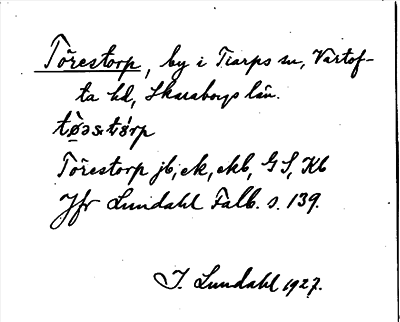 Törestorp, by i Tiarps sn, Vartof-
ta hd, Skaraborgs län.
Törestorp jb, ek, ekb, GS, Kb
Jfr Lundahl Falb. s. 139.
I. Lundahl 1927.